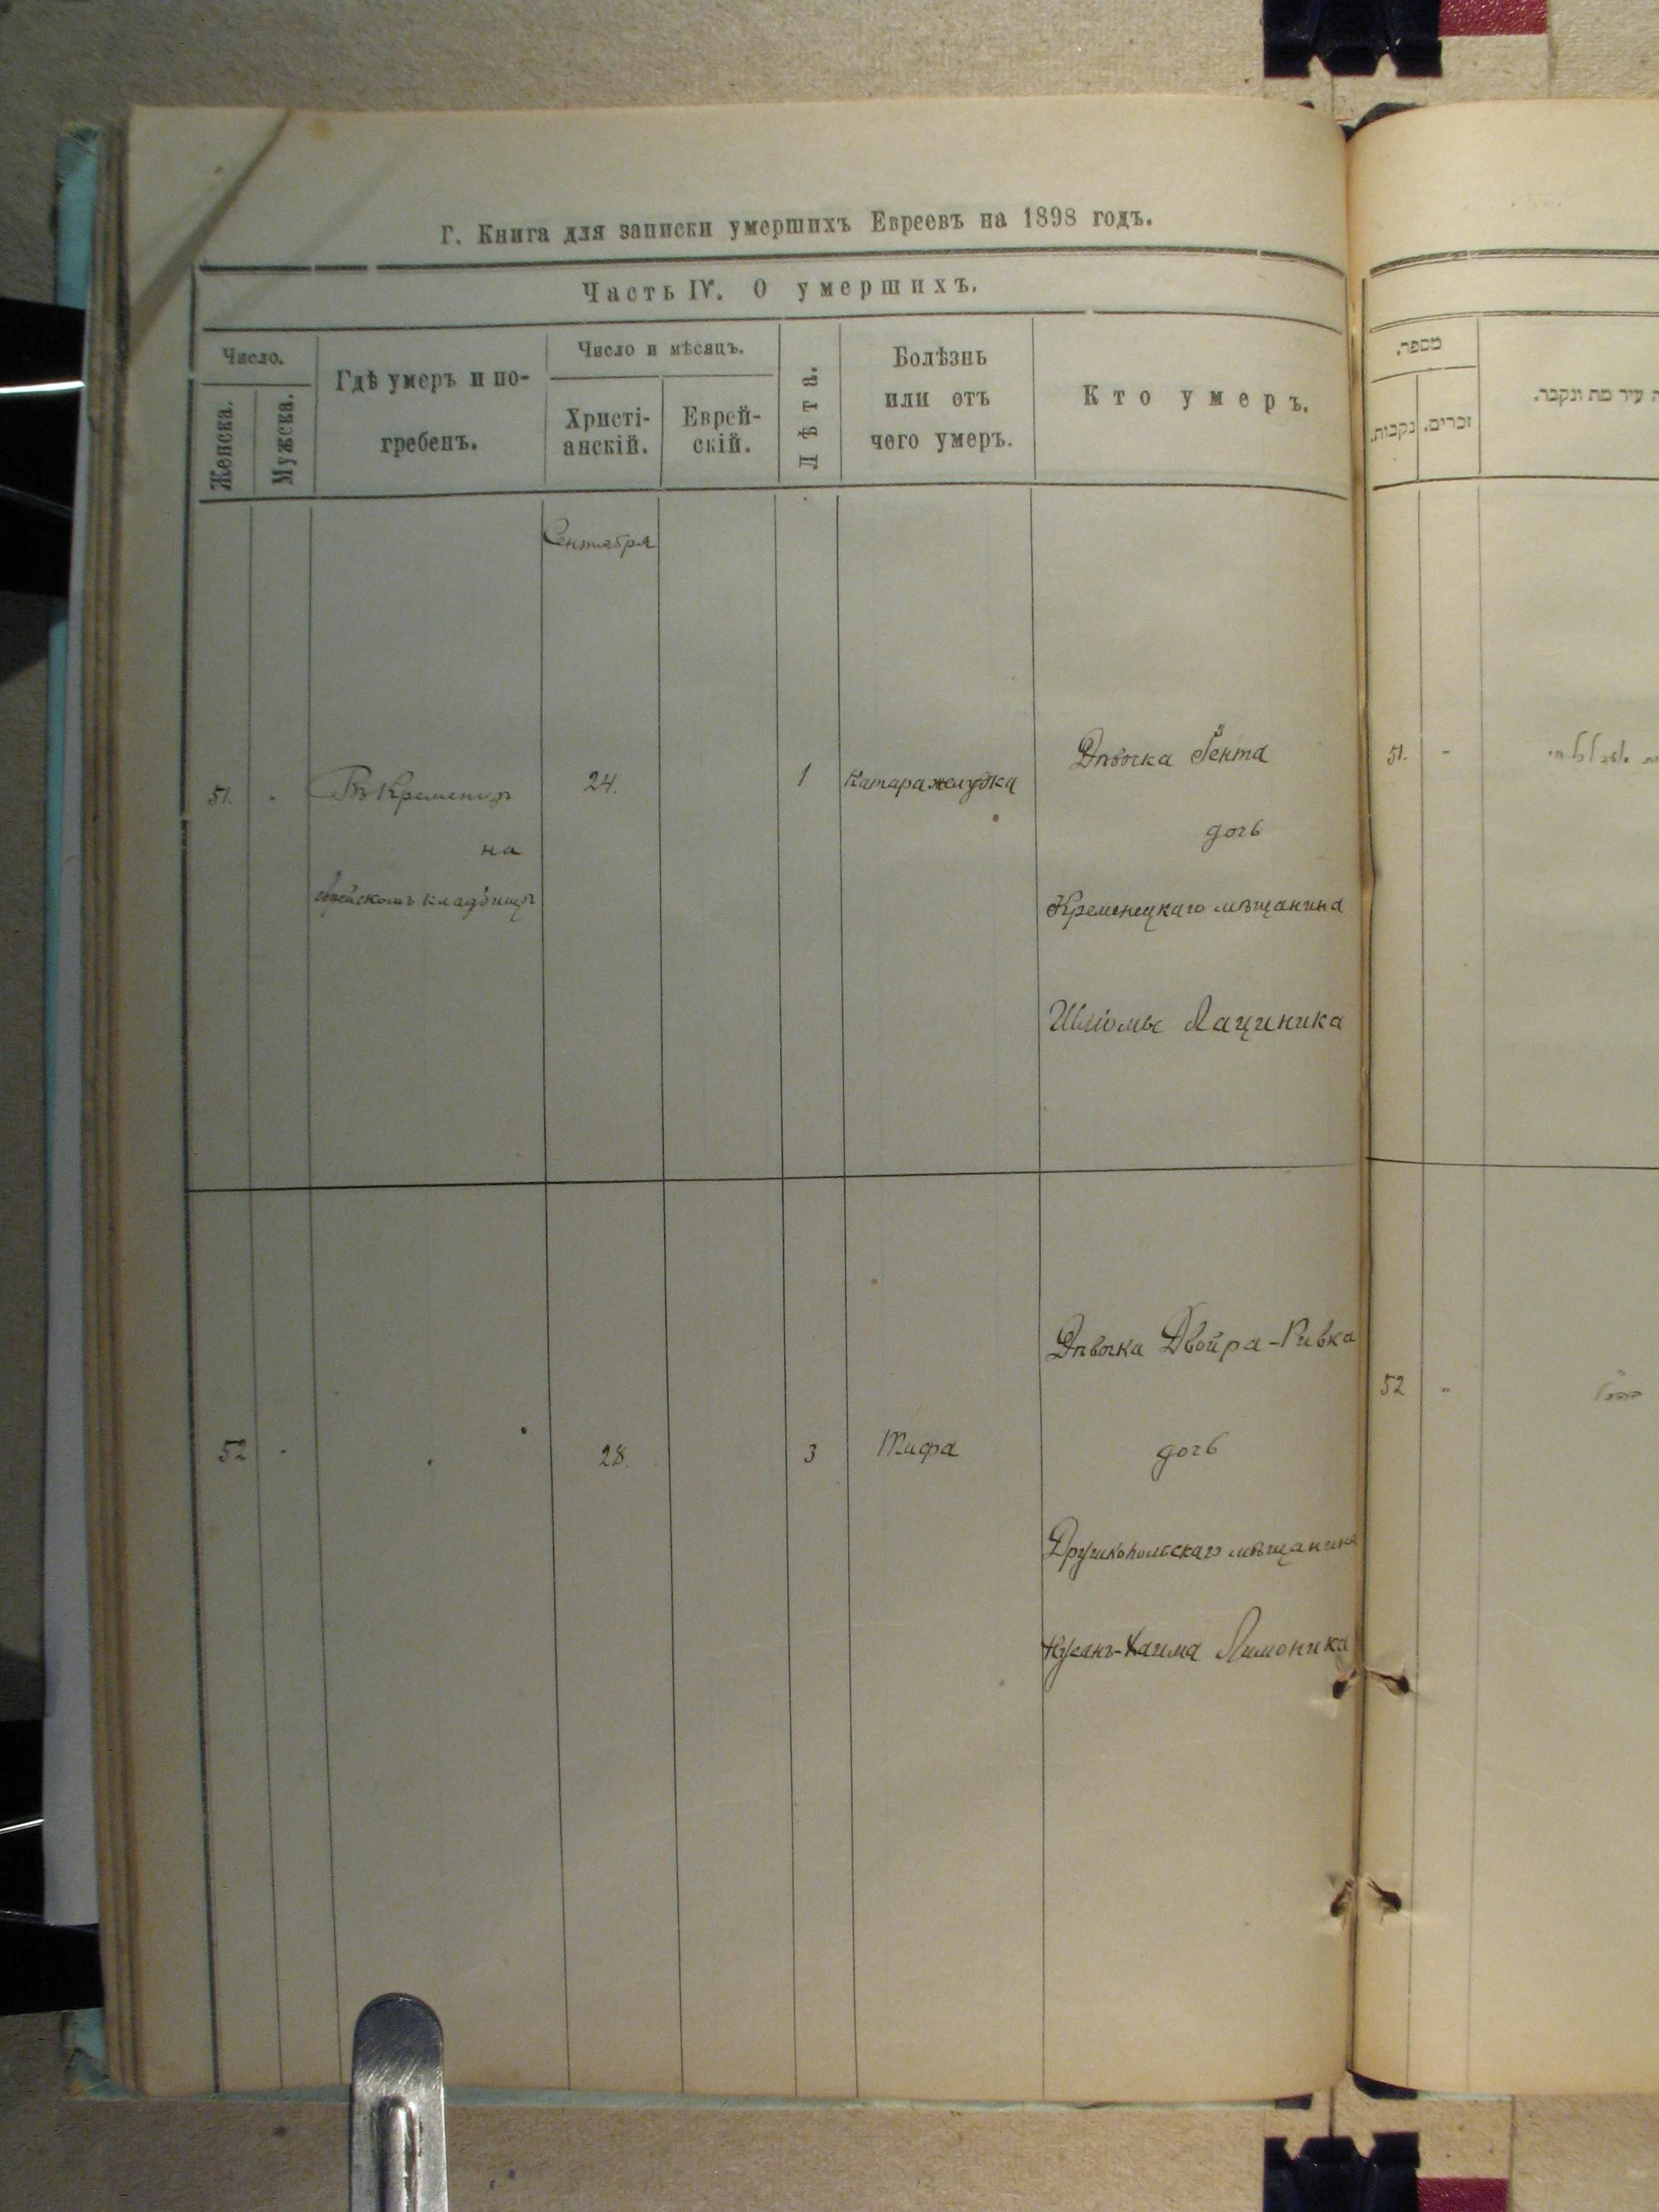 Г. Книга для записки умершихъ Евреевъ на 1898 годъ.
Часть IV. О умершихъ.
Число.
Женска.
Мужска.
Гдѣ умеръ и по-
гребенъ.
Число и мѣсяцъ.
Христі-
анскій.
Еврей-
скій.
Лѣта.
Болѣзнь
или отъ
чего умеръ.
Кто умеръ.
Сентября
51.
Въ Кременцѣ
на
еврейскомъ кладбищѣ
24.
1
Катара желудка
Дѣвочка Гента
дочь
Кременецкаго мѣщанина
Шлiомы Лациника
52
28.
3
Тифа
Дѣвочка Двойра-Ривка
дочь
Дружкопольскаго мѣщанина
Нусинъ-Хаима Лимоника
מספר.
נקבות.
זכרים.
עיר מת ונקבר.
51.
52